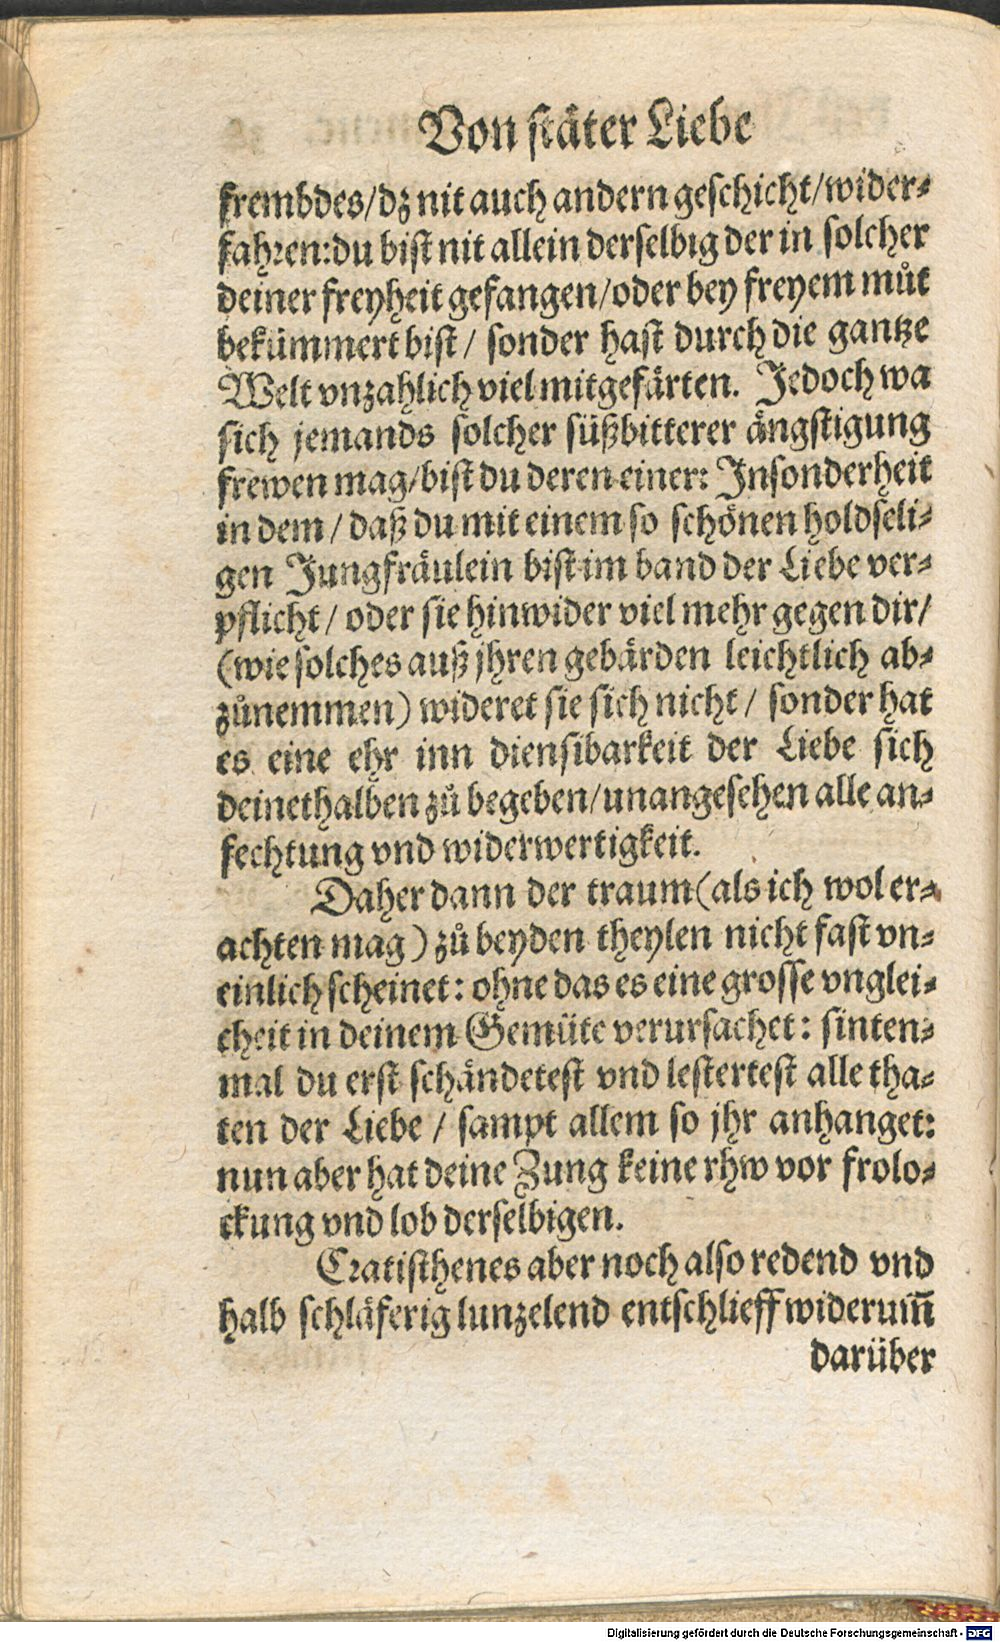 Von stäter Liebe
frembdes/dz nit auch andern geschicht/wider-
fahren: du bist nit allein derselbig der in solcher
deiner freyheit gefangen/oder bey freyem můt
bekümmert bist / sonder hast durch die gantze
Welt vnzahlich viel mitgefärten. Jedoch wa
sich jemands solcher süßbitterer ängstigung
frewen mag/bist du deren einer: Insonderheit
in dem / daß du mit einem so schönen holdseli-
gen Jungfräulein bist im band der Liebe ver-
pflicht / oder sie hinwider viel mehr gegen dir/
(wie solches auß jhren gebärden leichtlich ab-
zůnemmen) wideret sie sich nicht / sonder hat
es eine ehr inn dienstbarkeit der Liebe sich
deinethalben zů begeben/unangesehen alle an-
fechtung vnd widerwertigkeit.
Daher dann der traum (als ich wol er-
achten mag) zů beyden theylen nicht fast vn-
einlich scheinet: ohne das es eine grosse vnglei-
cheit in deinem Gemüte verursachet: sinten-
mal du erst schändetest vnd lestertest alle tha-
ten der Liebe / sampt allem so jhr anhanget:
nun aber hat deine Zung keine rhw vor frolo-
ckung vnd lob derselbigen.
Cratisthenes aber noch also redend vnd
halb schläferig lunzelend entschlieff widerum̄
darüber
Digitalisierung gefördert durch die Deutsche Forschungsgemeinschaft - DFG